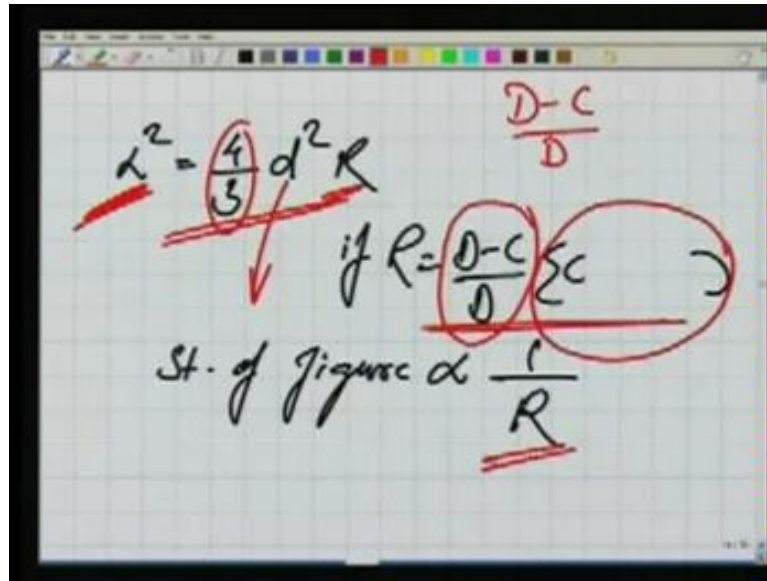 D-C
D
L² = 4/3 d² R
if R = D-C/D {C }
St. of figure ∝ 1/R